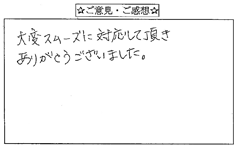 ☆ご意見・ご感想☆
大変スムーズに対応して頂き
ありがとうございました。